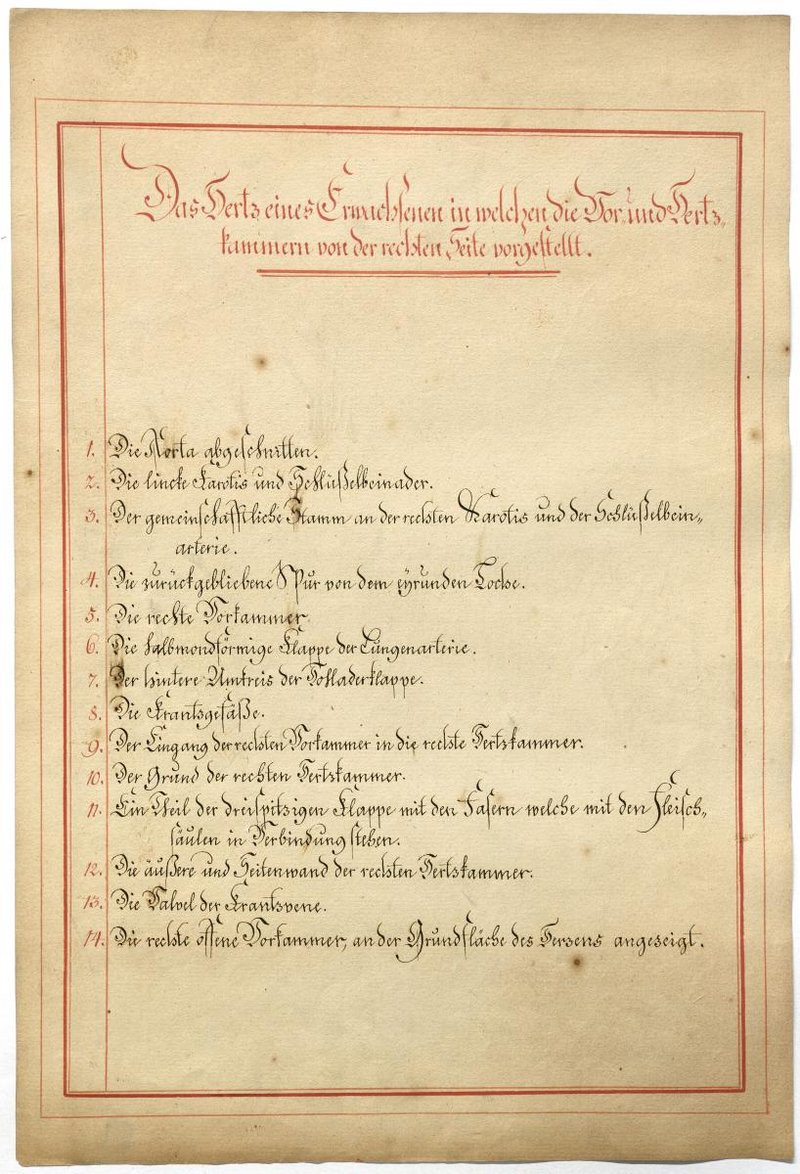 Das Hertz eines Erwachsenen in welchen die Vor, und Hertz-
kammern von der rechten Seite vorgestellt.
1. Die Aorta abgeschnitten.
2. Die lincke Karotis und Schlüßelbeinader.
3. Der gemeinschafftliche Stamm an der rechten Karotis und der Schlüßelbein-
arterie.
4. Die zurückgebliebene Spur von dem eyrunden Loche.
5. Die rechte Vorkammer
6. Die halbmondförmige Klappe der Lungenarterie.
7. Der hintere Umkreis der Hohladerklappe.
8. Die Krantzgefäße.
9. Der Eingang der rechten Vorkammer in die rechte Hertzkammer.
10. Der Grund der rechten Hertzkammer.
11. Ein Theil der dreispitzigen Klappe mit den Fasern welche mit den Fleisch-
säulen in Verbindung stehen.
12. Die äußere und Seitenwand der rechten Hertzkammer.
13. Die Valvel der Krantzvene.
14. Die rechte offene Vorkammer, an der Grundfläche des Herzens angezeigt.